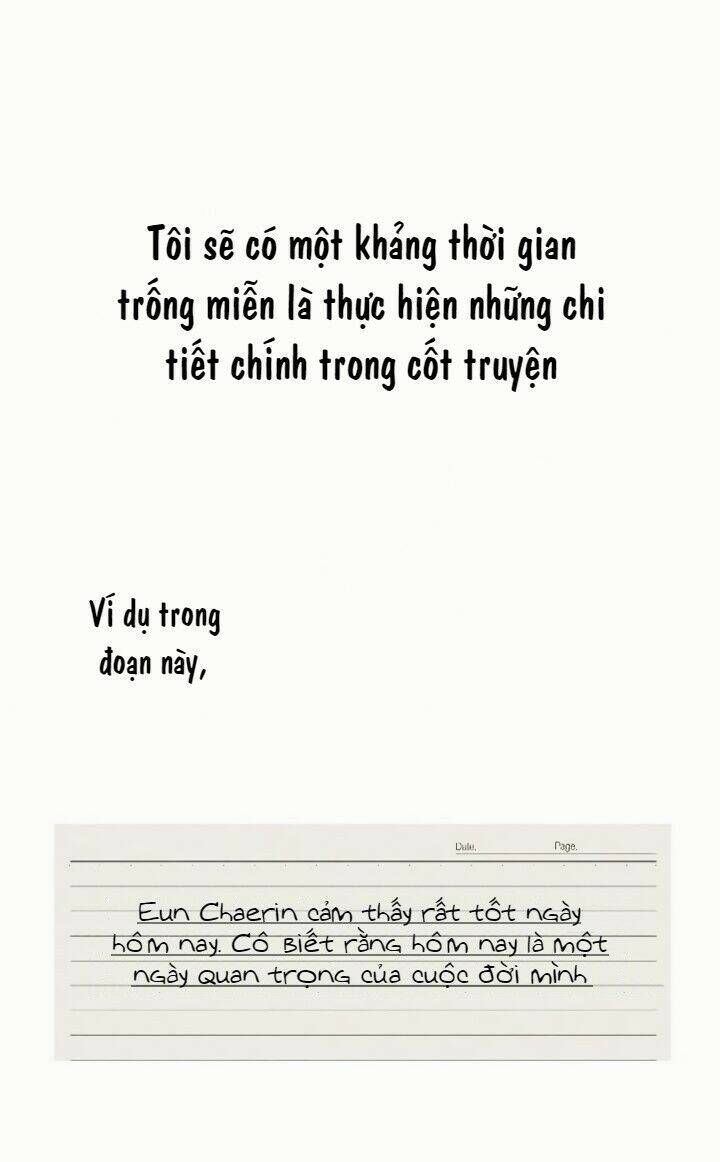 Tôi sẽ có một khảng thời gian
trống miễn là thực hiện những chi
tiết chính trong cốt truyện
Ví dụ trong
đoạn này,
Date.
Page.
Eun Chaerin cảm thấy rất tốt ngày
hôm nay. Cô Biết rằng hôm nay là một
ngày quan trọng của cuộc đời mình